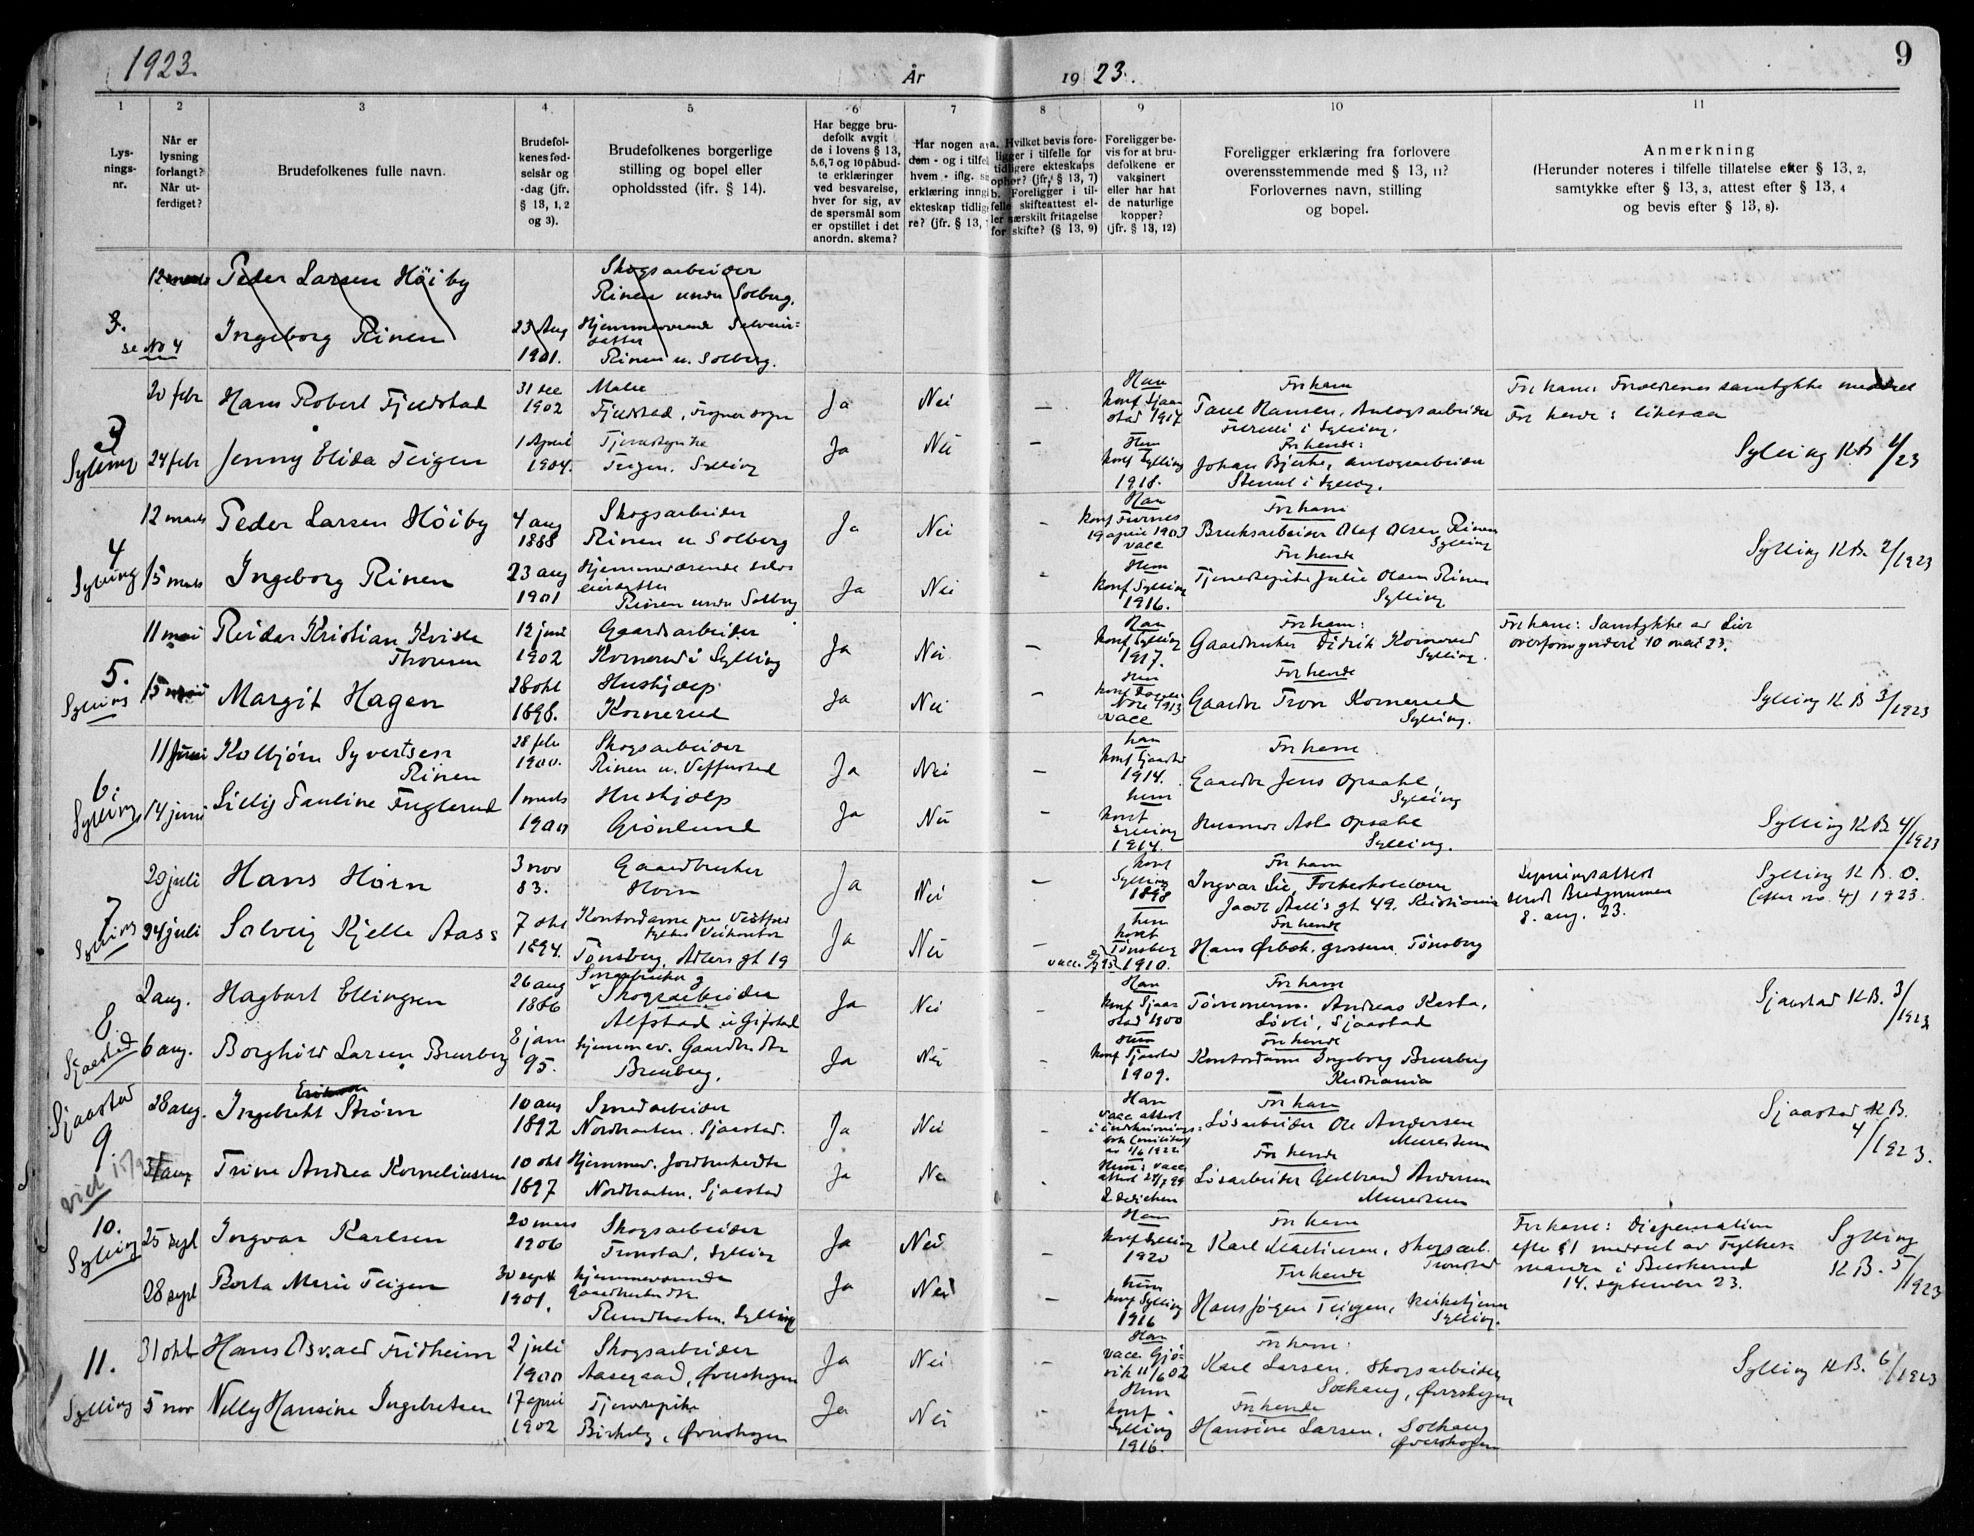 1923.
År
19 23.
9
1
2
3
4
5
6
7
8
9
10
11
Lys-
nings-
nr.
Når er
lysning
forlangt?
Når ut-
ferdiget?
Brudefolkenes fulle navn.
Brudefol-
kenes fød-
selsår og
-dag (jfr.
§ 13, 1, 2
og 3).
Brudefolkenes borgerlige
stilling og bopel eller
opholdssted (ifr. § 14).
Har begge bru-
defolk avgitt
de i lovens § 13,
5, 6, 7 og 10 påbud-
te erklæringer
ved besvarelse,
hver for sig, av
de spørsmål som
er opstillet i det
anordn. skema?
Har nogen av
dem - og i tilfel
hvem - iflg.
erklæring inngå
ekteskap tidlig
re? (jfr. § 13,
a. Hvilket bevis fore-
ligger i tilfelle for
tidligere ekteskaps
ophør? (jfr. § 13, 7)
b. Foreligger i til-
felle skifteattest el-
ler særskilt fritagelse
for skifte? (§ 13, 9)
Foreligger be-
vis for at bru-
defolkene er
vaksinert
eller har hat
de naturlige
kopper?
(jfr. § 13, 12)
Foreligger erklæring fra forlovere
overensstemmende med § 13, 11?
Forlovernes navn, stilling
og bopel.
Anmerkning
(Herunder noteres i tilfelle tillatelse efter § 13, 2,
samtykke efter § 13, 3, attest efter § 13, 4
og bevis efter § 13, 8).
3.
se No 4
12 mars
Peder Larsen Höiby
Skogsarbeider
Rinen under Solberg.
Ingeborg Rinen
23 Aug
1901.
Hjemmeværende Selveier=
datter
Rinen u. Solberg.
3
Sylling
20 febr
Hans Robert Fjeldstad
31 dec
1902
Maler
Fjeldstad, Sogner sogn
Ja
Nei
—
Han
konf Sjaa
stad 1917
For ham
Paul Hansen, Anlægsarbeider
i Sylling.
For ham: Forældrenes samtykke meddelt
For hende: likesaa
24 febr
Jenny Elida Teigen
1 April
1904.
Tjenestepike
Teigen, Sylling
Ja
Nei
—
Hun
konf Sylling
1918.
For hende:
Johan Bjerke, anlægsarbeider
i Sylling.
Sylling K B 1/23
4
Sylling
12 mars
Peder Larsen Höiby
4 aug
1888
Skogsarbeider
Rinen u Solberg
Ja
Nei
-
Han
konf Furnes
19 april 1903
vacc
For ham
Bruksarbeider Olaf Olsen Rinen
Sylling
15 mars
Ingeborg Rinen
23 aug
1901
Hjemmeværende selv
eierdatter
Rinen under Solberg
Ja
Nei
-
Hun
konf Sylling
1916.
For hende
Tjenestepike Julie Olsen Rinen
Sylling
Sylling K B. 2/1923
5.
Sylling
11 mai
Reidar Kristian Kviste
Thoresen
12 juni
1902
Gaardsarbeider
Kornerud i Sylling
Ja
Nei
—
Han
konf Sylling
1917.
For ham:
Gaardbruker Didrik Kornerud
Sylling.
For ham: Samtykke av Lier
overformynderi 10 mai 23.
15 mai
Margit Hagen
28 okt
1898.
Hushjælp
Kornerud
Ja
Nei
—
Hun
Nore 1913
vacc
For hende
Gaardbr Tron Kornerud
Sylling.
Sylling K B 3/1923
6.
Sylling
11 Juni
Kolbjörn Syvertsen
Rinen
28 feb
1900.
Skogsarbeider
Rinen u.
Ja
Nei
—
han
konf Sjaastad
1914.
For ham
Gaardbr Jens Opsahl
Sylling
14 juni
Lilly Pauline Fuglerud
1 mars
1900
Hushjælp
Grönlund
Ja
Nei
hun
konf
Sylling
1914.
Opsahl
Sylling.
Sylling K B. 4/1923
7
Sylling
20 juli
Hans Horn
3 nov
83.
Gaardbruker
Horn
Ja
Nei
—
konf
Sylling
1898
For ham
Ingvar Lie,
Jacob Aall's gt 49. Kristiania
Lysningsattest
sendt
8. aug. 23.
Sylling K B. 0.
(efter no. 4) 1923.
24 juli
Solveig Kjelle Aass
7 okt
1894.
Kontordame ved Vestfold
fylkes Veikontor
Tönsberg, Adlers gt 19
Ja
Nei
—
hun
konf
Tönsberg
vacc. 1910.
For hende
Hans Örbæk. grosserer. Tönsberg
8.
Sjaastad
2 aug.
Hagbart Ellingsen
26 aug
1886
Smaabruker og
Skogsarbeider
Alfstad u Gifstad
Ja
Nei
—
Han
konf Sjaa
stad 1900
For ham
Tömmerm. Andreas Kasta,
Lövli, Sjaastad
Sjaastad K B. 3/1923
6 aug.
Borghild Larsen Brurberg
8 jan
95.
hjemmev. Gaardbr.dtr
Brurberg.
Ja
Nei
-
Hun
konf Sjaastad
1909.
For hende
Kontordame Ingeborg Brurberg
Kristiania
Sjaastad
9.
viet
28 aug.
Ingebrekt Ström
10 aug
1892
Smedarbeider
Nordhagen. Sjaastad.
Ja
Nei
-
Han
vacc attest
For ham
Lösarbeider Ole Andersen
Sjaastad K B.
4/1923.
31 aug
Trine Andrea Korneliussen
10 okt
1897
Hjemmev. Jordbrukerdtr
Nordhagen, Sjaastad
Ja
Nei
Hun: vacc
attest
For hende
Lösarbeider Gulbrand Andersen
10.
Sylling
25 sept
Ingvar Karlsen
20 mars
1906
Skogsarbeider
Tronstad, Sylling
Ja
Nei
—
Han
konf Sylling
1920
For ham
Karl Martinsen, Skogsarb.
Tronstad
For ham: Dispensation
efter §1 meddelt av Fylkes=
manden i Buskerud
14. september 23.
Sylling
K B. 5/1923
28 sept
Berta Marie Teigen
30 sept
1901.
hjemmeværende
Gaardbrukerdtr
Sylling
Ja
Nei
—
hun
konf Sylling
1916
For hende
Hans Jörgen Teigen, Kirketjener
Sylling.
11.
Sylling
31 okt
Hans Osvald Fridheim
2 juli
1900
Skogsarbeider
Aasegaard, Överskogen
Ja
Nei
—
Han
vacc Gjö-
vik 11/6 02
For ham:
Karl Larsen, Skogsarbeider
Solhaug, Överskogen
Sylling K B. 6/1923
5 nov
Nelly Hansine Ingebretsen
17 april
1902
Tjenestepike
Birkely, Överskogen
Ja
Nei
-
Hun
konf.
Sylling
1916.
For hende
Hansine Larsen, Solhaug
Överskogen